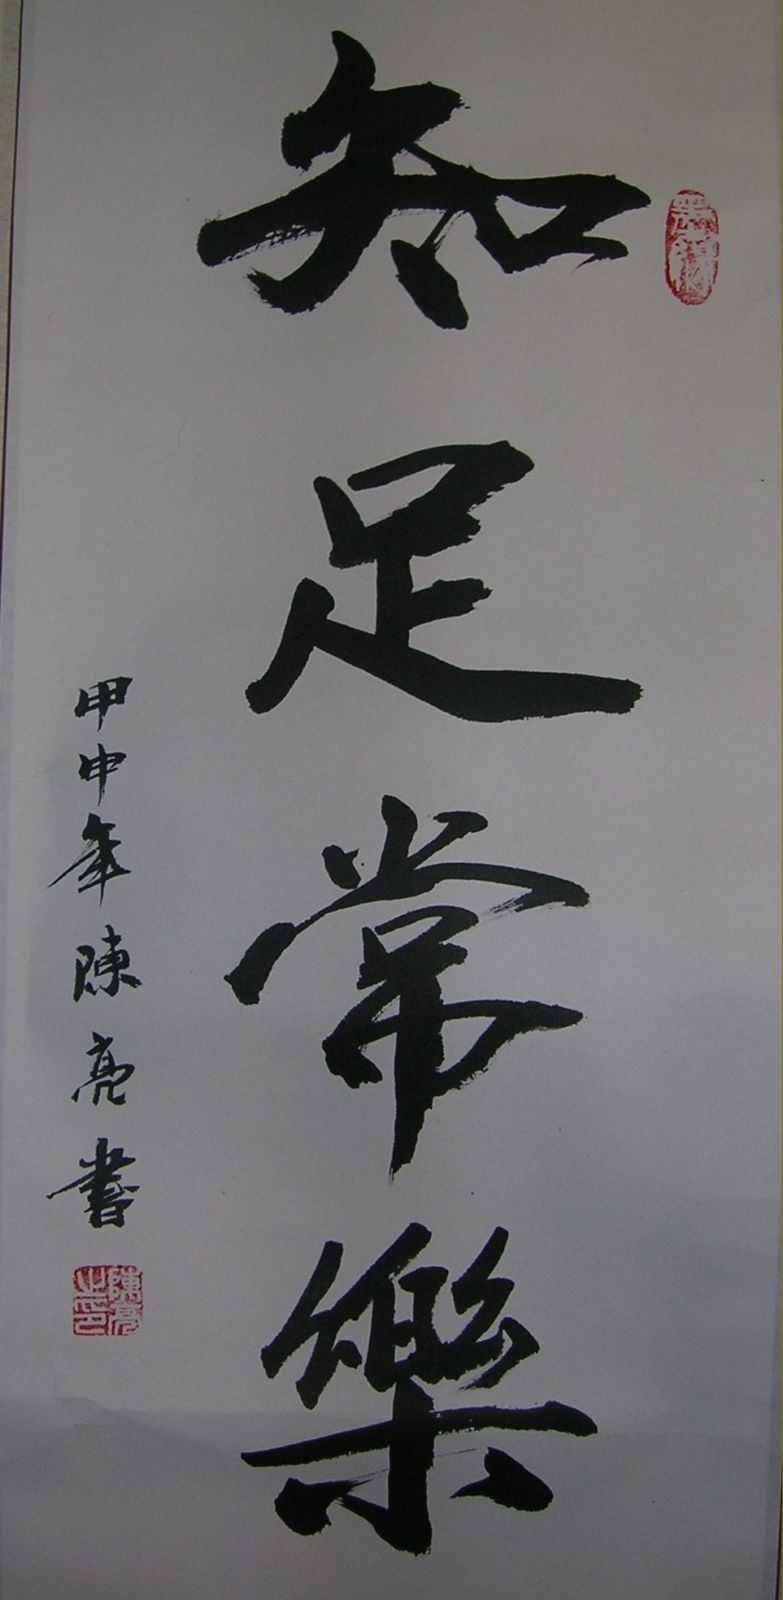 知足常樂
甲申年陳亮書
陳亮之印